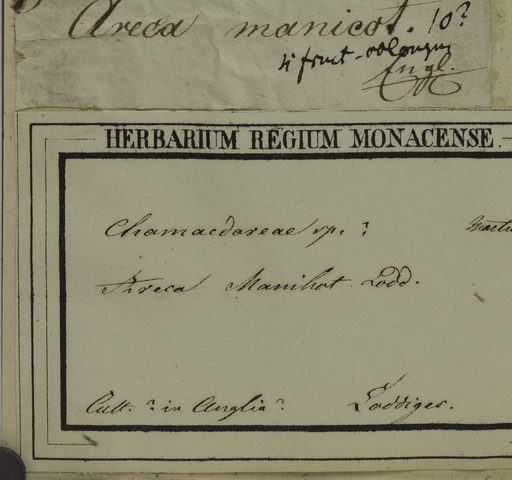 Areca manicot. 10?
si fruct. oblongus
Engl.
HERBARIUM REGIUM MONACENSE.
Chamaedoreae sp. ?
Areca Manihot Lodd.
Cult. ? in Anglia ?
Loddiges.